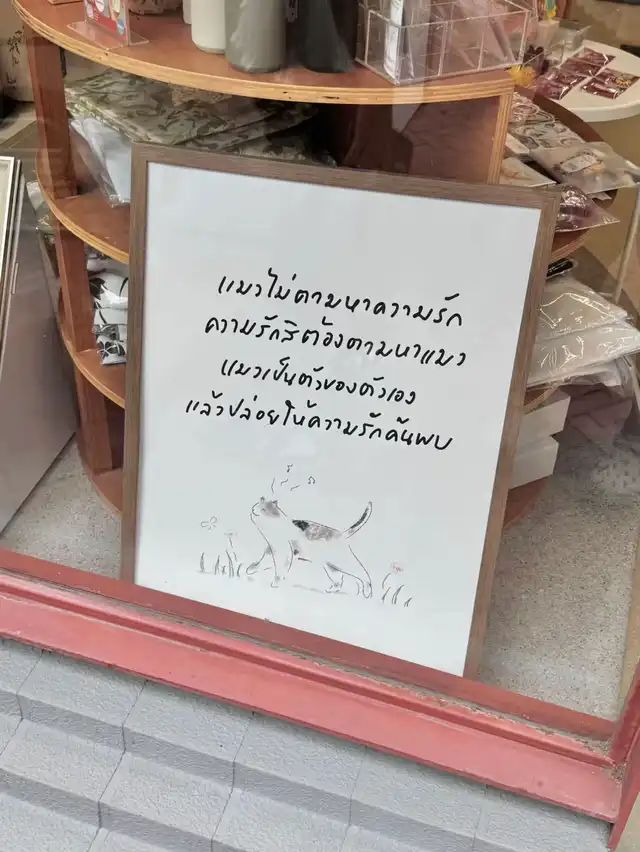 แมวไม่ตามหาความรัก
ความรักสิต้องตามหาแมว
แมวเป็นตัวของตัวเอง
แล้วปล่อยให้ความรักค้นพบ